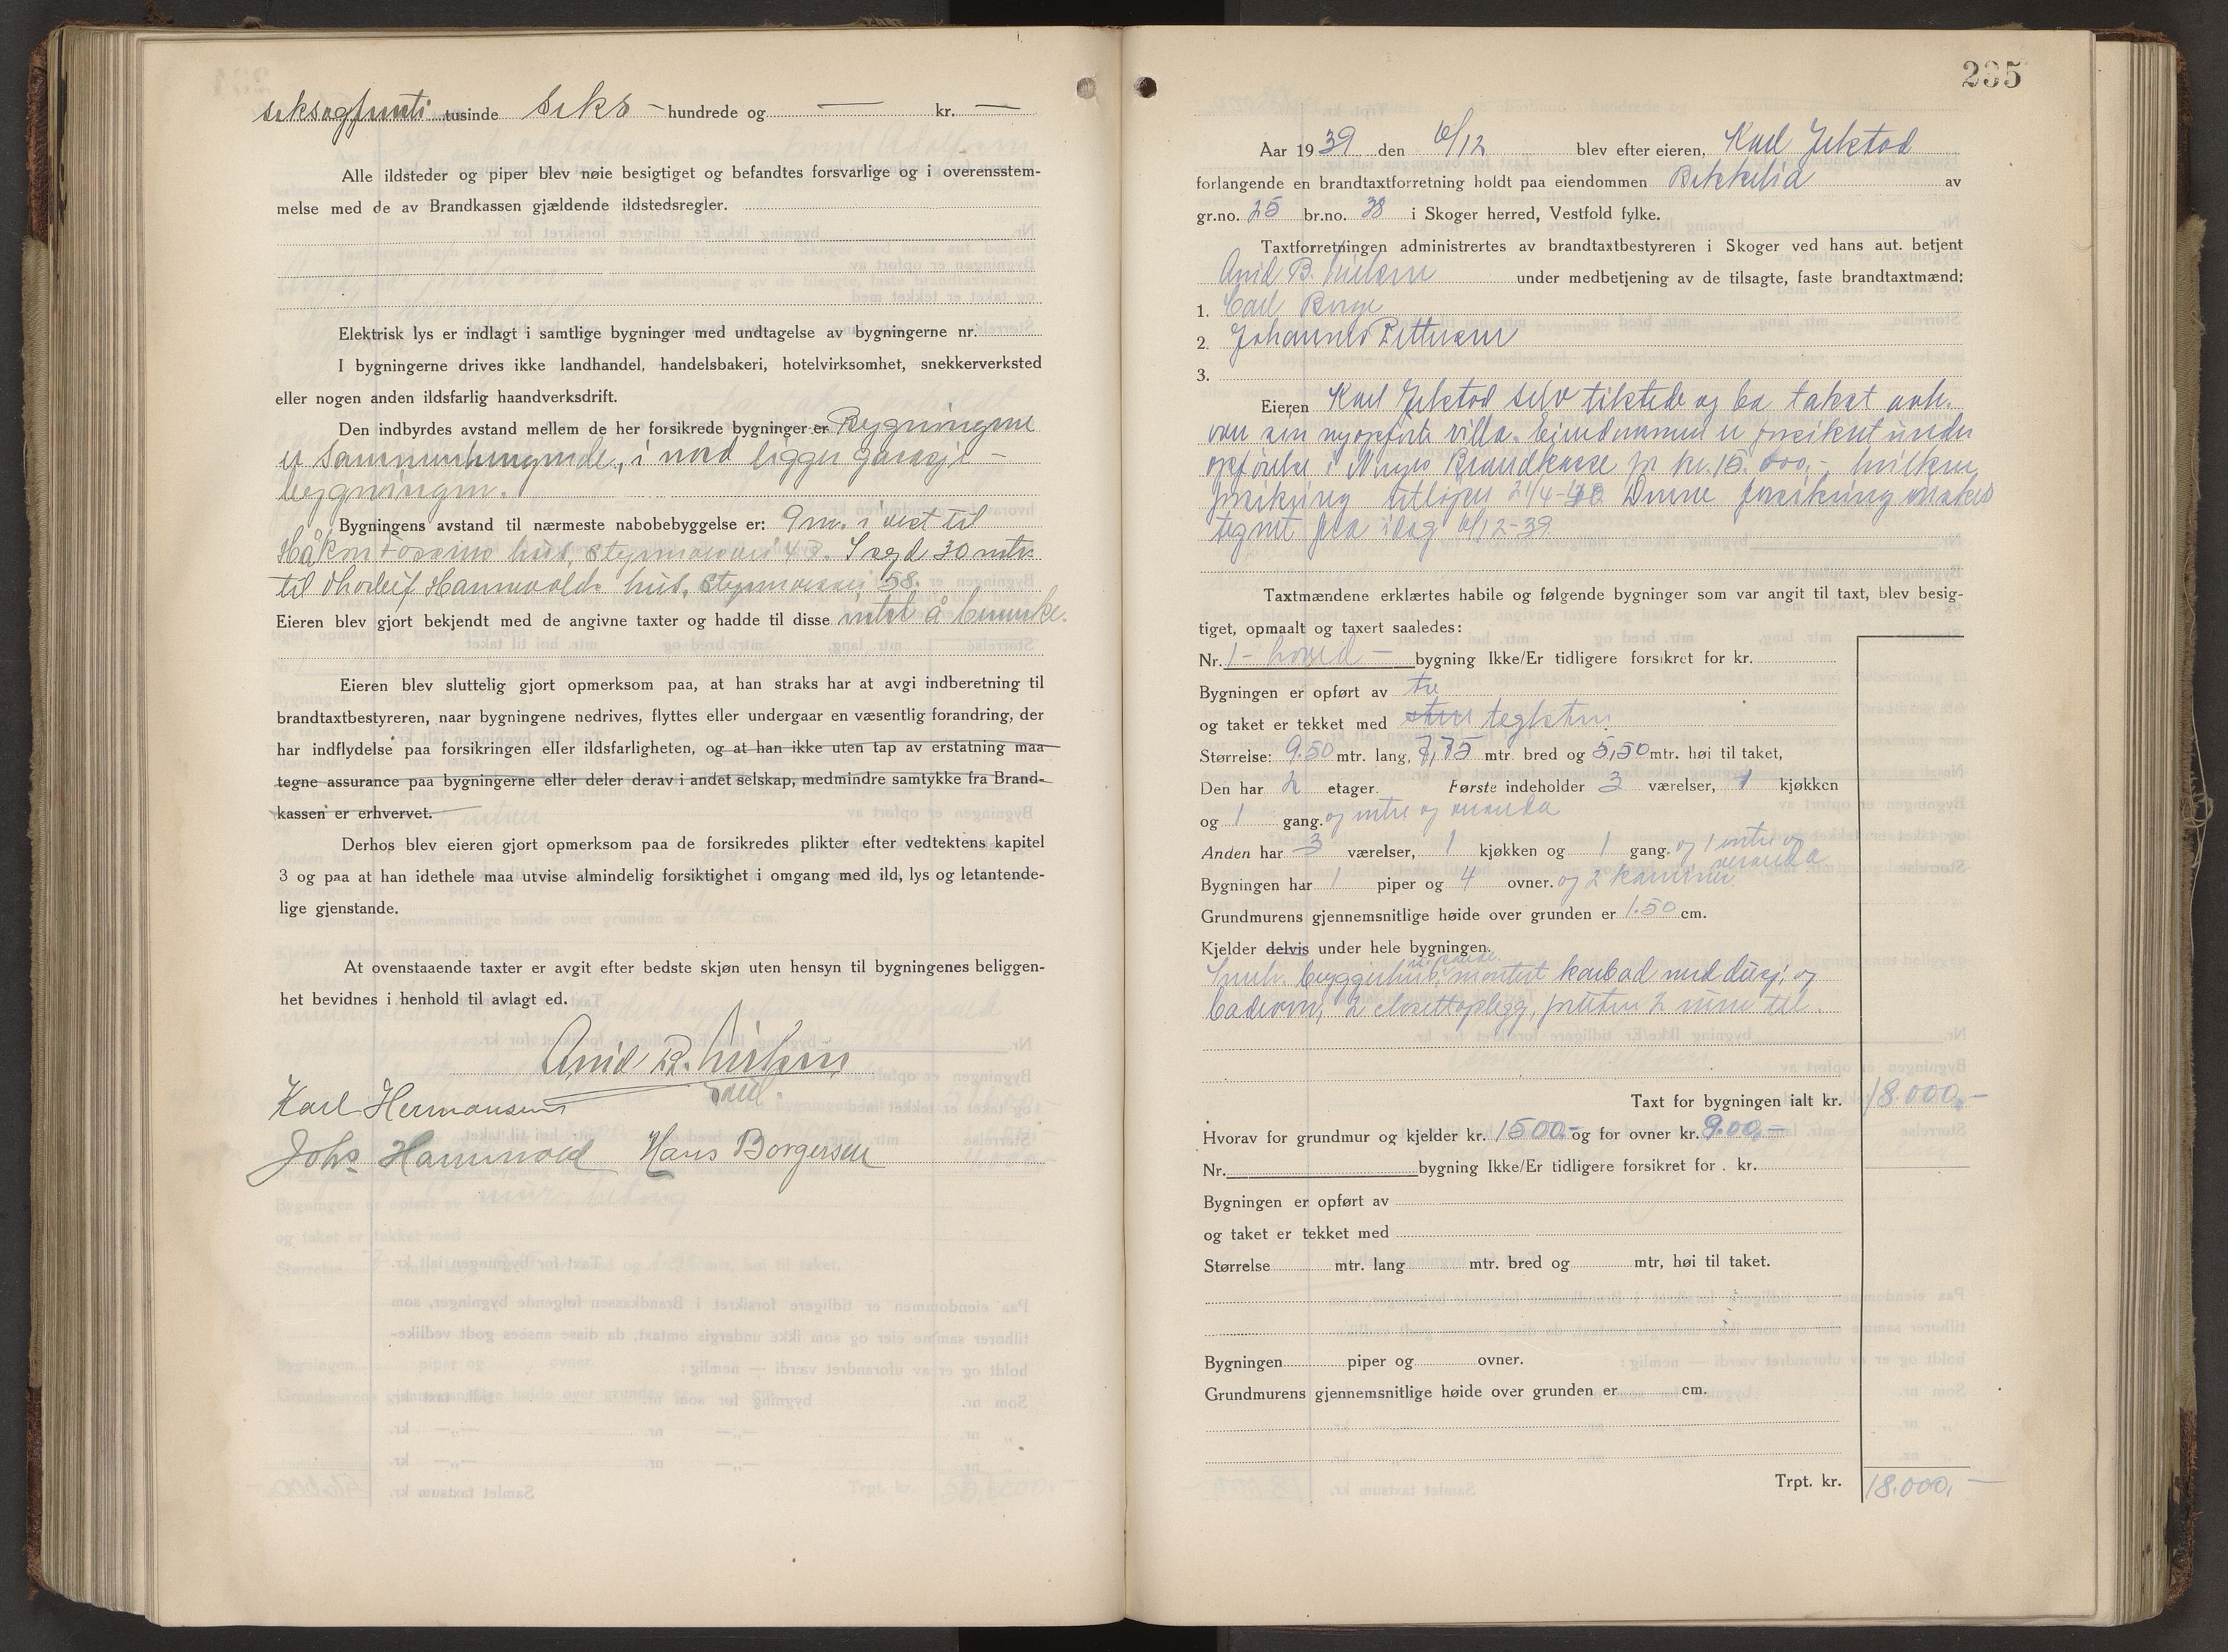 seksogfemti tusinde seks – hundrede og — kr. —
Alle ildsteder og piper blev nøie besigtiget og befandtes forsvarlige og i overensstem-
melse med de av Brandkassen gjældende ildstedsregler.
Elektrisk lys er indlagt i samtlige bygninger med undtagelse av bygningerne nr.
I bygningerne drives ikke landhandel, handelsbakeri, hotelvirksomhet, snekkerverksted
eller nogen anden ildsfarlig haandverksdrift.
Den indbyrdes avstand mellem de her forsikrede bygninger er Bygningene
er sammenhengende, i nord ligger garasje-
bygningen.
Bygningens avstand til nærmeste nabobebyggelse er: 9 m. i vest til
Håkon hus, 43. I syd 30 mtr.
til Thorleif Hannevolds hus, 58.
Eieren blev gjort bekjendt med de angivne taxter og hadde til disse intet å bemerke.
Eieren blev sluttelig gjort opmerksom paa, at han straks har at avgi indberetning til
brandtaxtbestyreren, naar bygningene nedrives, flyttes eller undergaar en væsentlig forandring, der
har indflydelse paa forsikringen eller ildsfarligheten, og at han ikke uten tap av erstatning maa
tegne assurance paa bygningerne eller deler derav i andet selskap, medmindre samtykke fra Brand-
kassen er erhvervet.
Derhos blev eieren gjort opmerksom paa de forsikredes plikter efter vedtektens kapitel
3 og paa at han idethele maa utvise almindelig forsiktighet i omgang med ild, lys og letantende-
lige gjenstande.
At ovenstaaende taxter er avgit efter bedste skjøn uten hensyn til bygningenes beliggen-
het bevidnes i henhold til avlagt ed.
Arvid B. Nielsen
Karl Hermansen
Johs Hannevold Hans Borgersen
235
Aar 1939 den 6/12 blev efter eieren, Karl Jelstad
forlangende en brandtaxtforretning holdt paa eiendommen Bekkelid av
gr.no. 25 br.no. 38 i Skoger herred, Vestfold fylke.
Taxtforretningen administrertes av brandtaxtbestyreren i Skoger ved hans aut. betjent
Arvid B. Nielsen under medbetjening av de tilsagte, faste brandtaxtmænd:
1. Carl Borge
2. Johannes Pettersen
3.
Eieren Karl Jelstad selv tilstede og ba takst avh.
over sin nyopførte villa. Eiendommen er forsikret under
opførelse i Norges Brandkasse for kr. 15.000,-, hvilken
forsikring utløper 21/4-40. Denne forsikring ønskes
tegnet fra idag 6/12-39.
Taxtmændene erklærtes habile og følgende bygninger som var angit til taxt, blev besig-
tiget, opmaalt og taxert saaledes:
Nr. 1 - hoved - bygning Ikke/Er tidligere forsikret for kr.
Bygningen er opført av tre
og taket er tekket med sten teglsten
Størrelse: 9.50 mtr. lang, 7,75 mtr. bred og 5,50 mtr. høi til taket,
Den har 2 etager. Første indeholder 3 værelser, 1 kjøkken
og 1 gang. og entre og veranda
Anden har 3 værelser, 1 kjøkken og 1 gang. og 1 entre og
veranda
Bygningen har 1 piper og 4 ovner. og 2 kaminer
Grundmurens gjennemsnitlige høide over grunden er 1.50 cm.
Kjelder delvis under hele bygningen.
Innh. bryggerhus, montert karbad med dusj, og
badeovn, 2 closettoplegg,
Taxt for bygningen ialt kr. 18.000,-
Hvorav for grundmur og kjelder kr. 1500,- og for ovner kr. 900,-
Nr. bygning Ikke/Er tidligere forsikret for . kr.
Bygningen er opført av
og taket er tekket med
Størrelse mtr. lang mtr. bred og mtr, høi til taket.
Bygningen piper og ovner.
Grundmurens gjennemsnitlige høide over grunden er cm.
Trpt. kr. 18.000,-